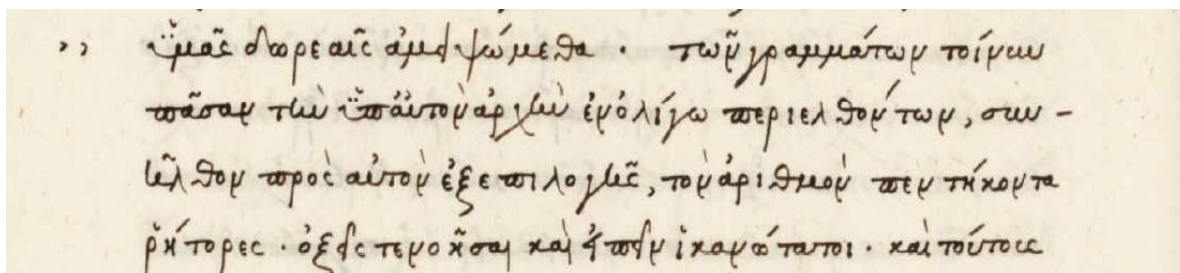 ,, ὑμᾶς δωρεαῖς ἀμειψώμεθα · τῶν γραμμάτων τοίνυν
πᾶσαν τὴν ὑπ᾽ αὐτὸν ἀρχὴν ἐν ὀλίγω περιελθόντων, συν -
ῆλθον πρὸς αὐτὸν ἐξ ἐπιλογῆς, τὸν ἀριθμὸν πεντήκοντα
ῥήτορες · ὀξεῖς τε νοῆσαι καὶ εἰπεῖν ἱκανώτατοι · καὶ τούτοις